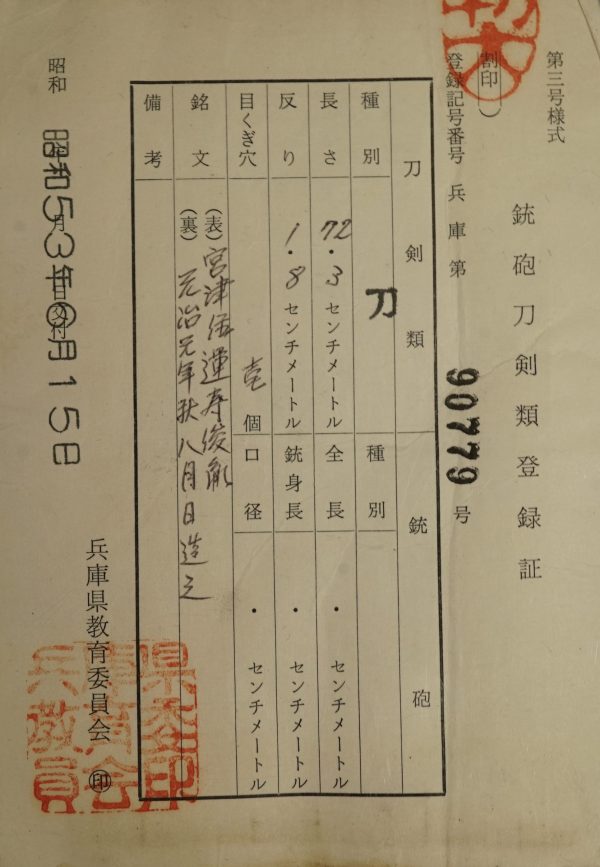 第三号様式
銃砲刀剣類登録証
割印
登録記号番号 兵庫第 90779 号
刀剣類
銃砲
種別 刀
種別
長さ 72・3センチメートル
全長 ・センチメートル
反り 1・8センチメートル
銃身長 ・センチメートル
目くぎ穴 壱個
口径 ・センチメートル
銘文
(表)宮津 運寿俊胤
(裏)元治元年秋八月日造之
備考
昭和 年 月 日交付
昭和53年 月15日
兵庫県教育委員会 ㊞
県委印
庫育会
兵教員